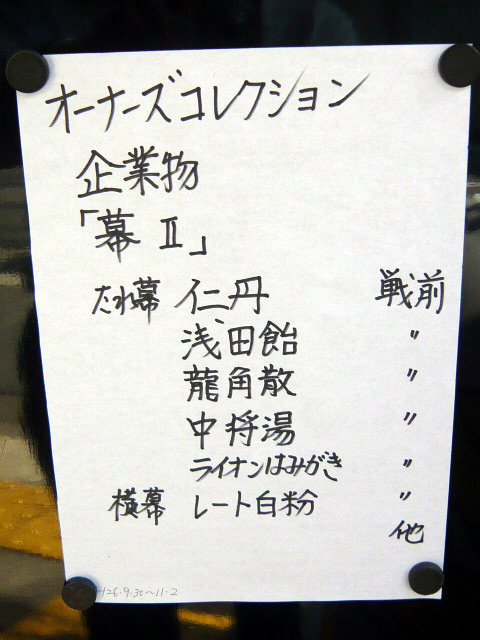 オーナーズコレクション
企業物
「幕 Ⅱ」
たれ幕 仁丹 戦前
浅田飴 〃
龍角散 〃
中将湯 〃
ライオンはみがき 〃
横幕 レート白粉 〃
他
H26.9.30~11.2